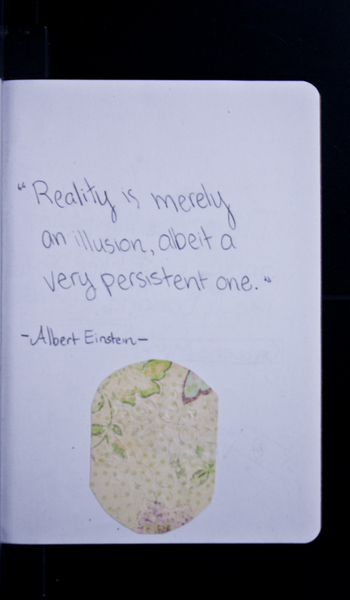 “Reality is merely
an illusion, albeit a
very persistent one.”
-Albert Einstein-